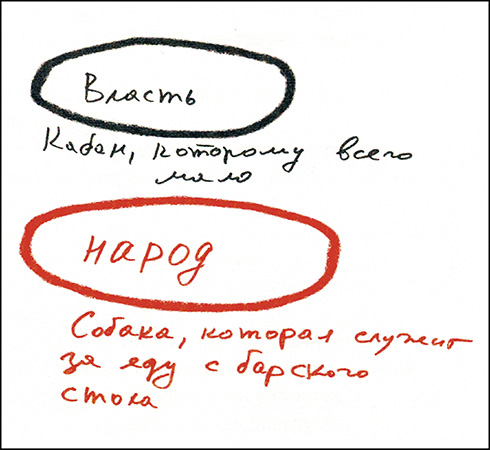 Власть
Кабан, которому всего
мало
народ
Собака, которая служит
за еду с барского
стола